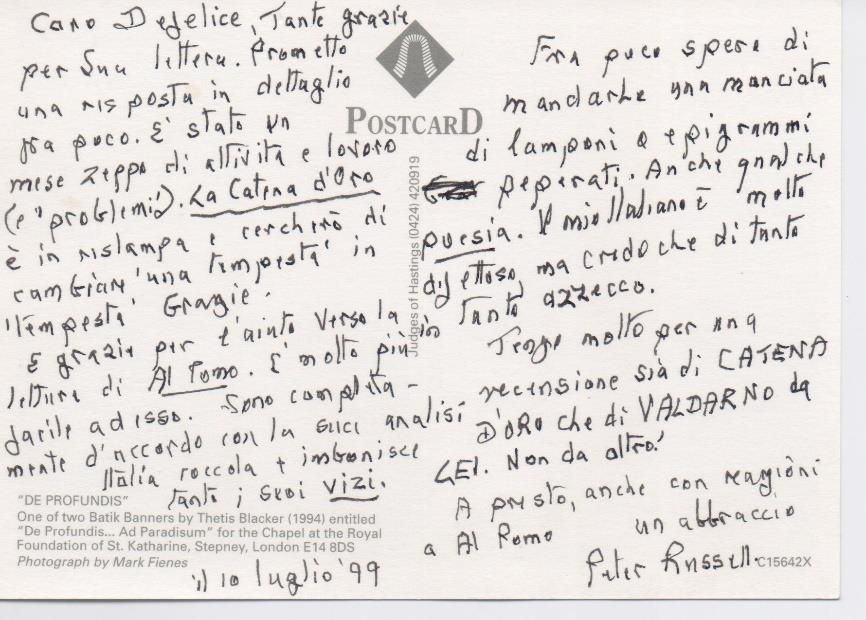 Caro Defelice, Tante grazie
per Sua lettera. Prometto
una risposta in dettaglio
fra poco. E' stato un
mese zeppo di attività e lavoro
(e "problemi"). La Catena d'Oro
è in ristampa e cercherò di
cambiare 'una tempesta' in
'tempesta' Grazie.
E grazie per l'aiuto verso la
lettura di Al Pomo. E' molto più
facile adesso. Sono completa-
mente d'accordo con la sua analisi
Italia
tanto i suoi vizi.
"DE PROFUNDIS"
One of two Batik Banners by Thetis Blacker (1994) entitled
"De Profundis... Ad Paradisum" for the Chapel at the Royal
Foundation of St. Katharine, Stepney, London E14 8DS
Photograph by Mark Fienes
il 10 luglio '99
POSTCARD
Judges of Hastings (0424) 420919
Fra poco spero di
mandarLe una manciata
di lamponi o epigrammi
peperati. Anche qualche
poesia. Il mio Italiano è molto
difettoso, ma credo che di tanto
in tanto azzecco.
Tengo molto per una
recensione sia di CATENA
D'ORO che di VALDARNO da
LEI. Non da altro!
A presto, anche con reagiòni
a Al Pomo un abbraccio
Peter Russell.
C15642X